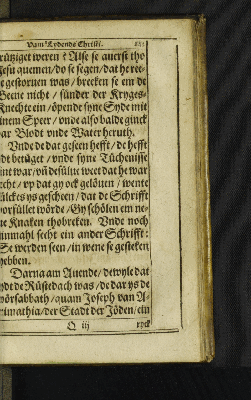 Vam Lydende Christi.
rützige weren? Alse se auerst tho
Jesu quemen/ do se segen/ dat he ree-
de gestoruen was/ brecken se em de
Beene nicht/ sünder der Kryges-
Knechte ein/ öpende syne Syde mit
einem Speer/ vnde alsobalde ginck
dar Blodt vnde Water heruth.
Vnde de dat geseen hefft/ de hefft
ydt betüget/ vnde syne Tüchenisse
ynt war/ vñ desülue weet dat he war
secht/ vp dat gy ock gelöuen/ wente
sülckes ys gescheen/ dat de Schrifft
vorfüllet wörde/ Gy schölen em ne-
ne Knaken thobreken. Vnde noch
einmahl secht ein ander Schrifft:
Se werden seen/ in wene se gesteken
hebben.
Darna am Auende/ dewyle dat
ydt de Rüstedach was/ de dar ys de
vörsabbath/ quam Joseph van A-
rimathia/ der Stadt der Jöden/ ein
Q iij
ryck